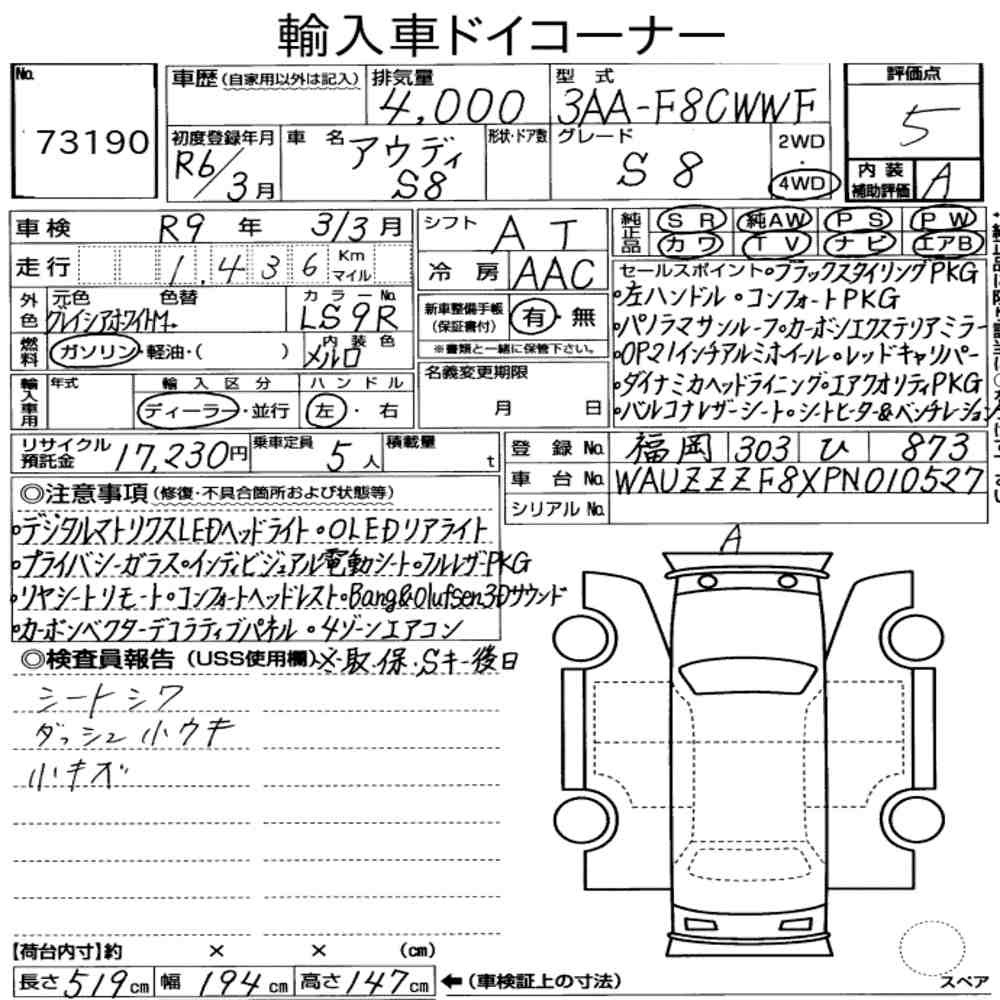 輸入車ドイコーナー
No. 73190
車歴(自家用以外は記入)
排気量 4,000
型式 3AA-F8CWWF
評価点 5
初度登録年月 R6/3月
車名 アウディ S8
形状・ドア数
グレード S8
2WD・4WD
内装補助評価 A
車検 R9年 3/3月
走行 1,436 Km マイル
シフト AT
冷房 AAC
純正品 SR 純AW PS PW
カワ TV ナビ エアB
外色 元色 グレイシアホワイトM. 色替
カラーNo. LS9R
燃料 ガソリン・軽油・( )
内装色 メルロ
新車整備手帳(保証書付) 有・無
※書類と一緒に保管下さい。
輸入車用 年式
輸入区分 ディーラー・並行
ハンドル 左・右
名義変更期限 月 日
セールスポイント・ブラックスタイリングPKG
・左ハンドル・コンフォートPKG
・パノラマサンルーフ・カーボンエクステリアミラー
・OP21インチアルミホイール・レッドキャリパー
・ダイナミカヘッドライニング・エアクオリティPKG
・バルコナレザーシート・シートヒーター&ベンチレーション
リサイクル預託金 17,230円
乗車定員 5人
積載量 t
登録No. 福岡 303 ひ 873
車台No. WAUZZZF8XPN010527
シリアルNo.
◎注意事項(修復・不具合箇所および状態等)
・デジタルマトリクスLEDヘッドライト・OLEDリアライト
・プライバシーガラス・インディビジュアル電動シート・フルレザーPKG
・リヤシートリモート・コンフォートヘッドレスト・Bang&Olufsen3Dサウンド
・カーボンベクターデコラティブパネル・4ゾーンエアコン
◎検査員報告(USS使用欄)※取.保.Sキー後日
シートシワ
ダッシュ小ウキ
小キズ
A
【荷台内寸】約 × × (cm)
長さ519cm 幅194cm 高さ147cm ←(車検証上の寸法)
スペア